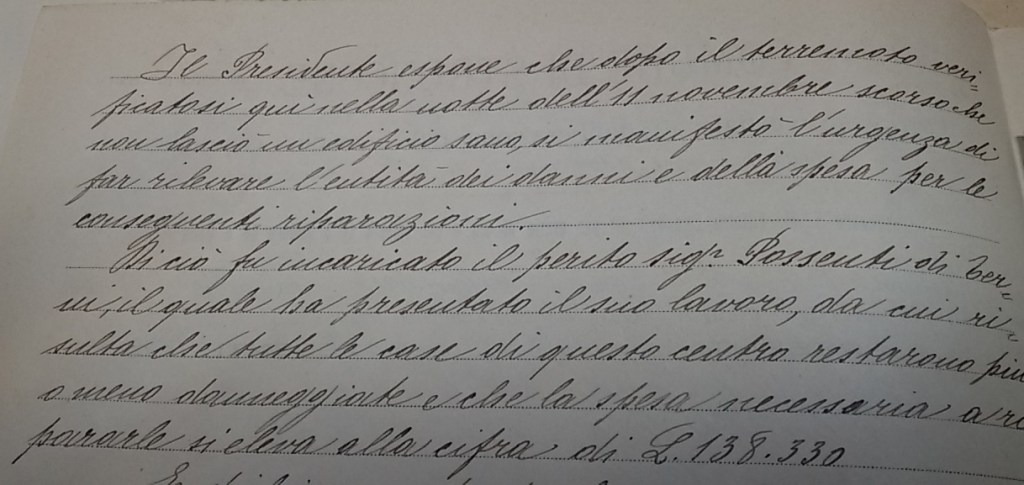 Il Presidente espone che dopo il terremoto veri=
ficatosi quì nella notte dell'11 novembre scorso che
non lasciò un edificio sano, si manifestò l'urgenza di
far rilevare l'entità dei danni e della spesa per le
conseguenti riparazioni.
Di ciò fu incaricato il perito sigr Possenti di Ter=
ni, il quale ha presentato il suo lavoro, da cui ri=
sulta che tutte le case di questo centro restarono più
o meno danneggiate e che la spesa necessaria a ri
pararle si eleva alla cifra di L. 138.330